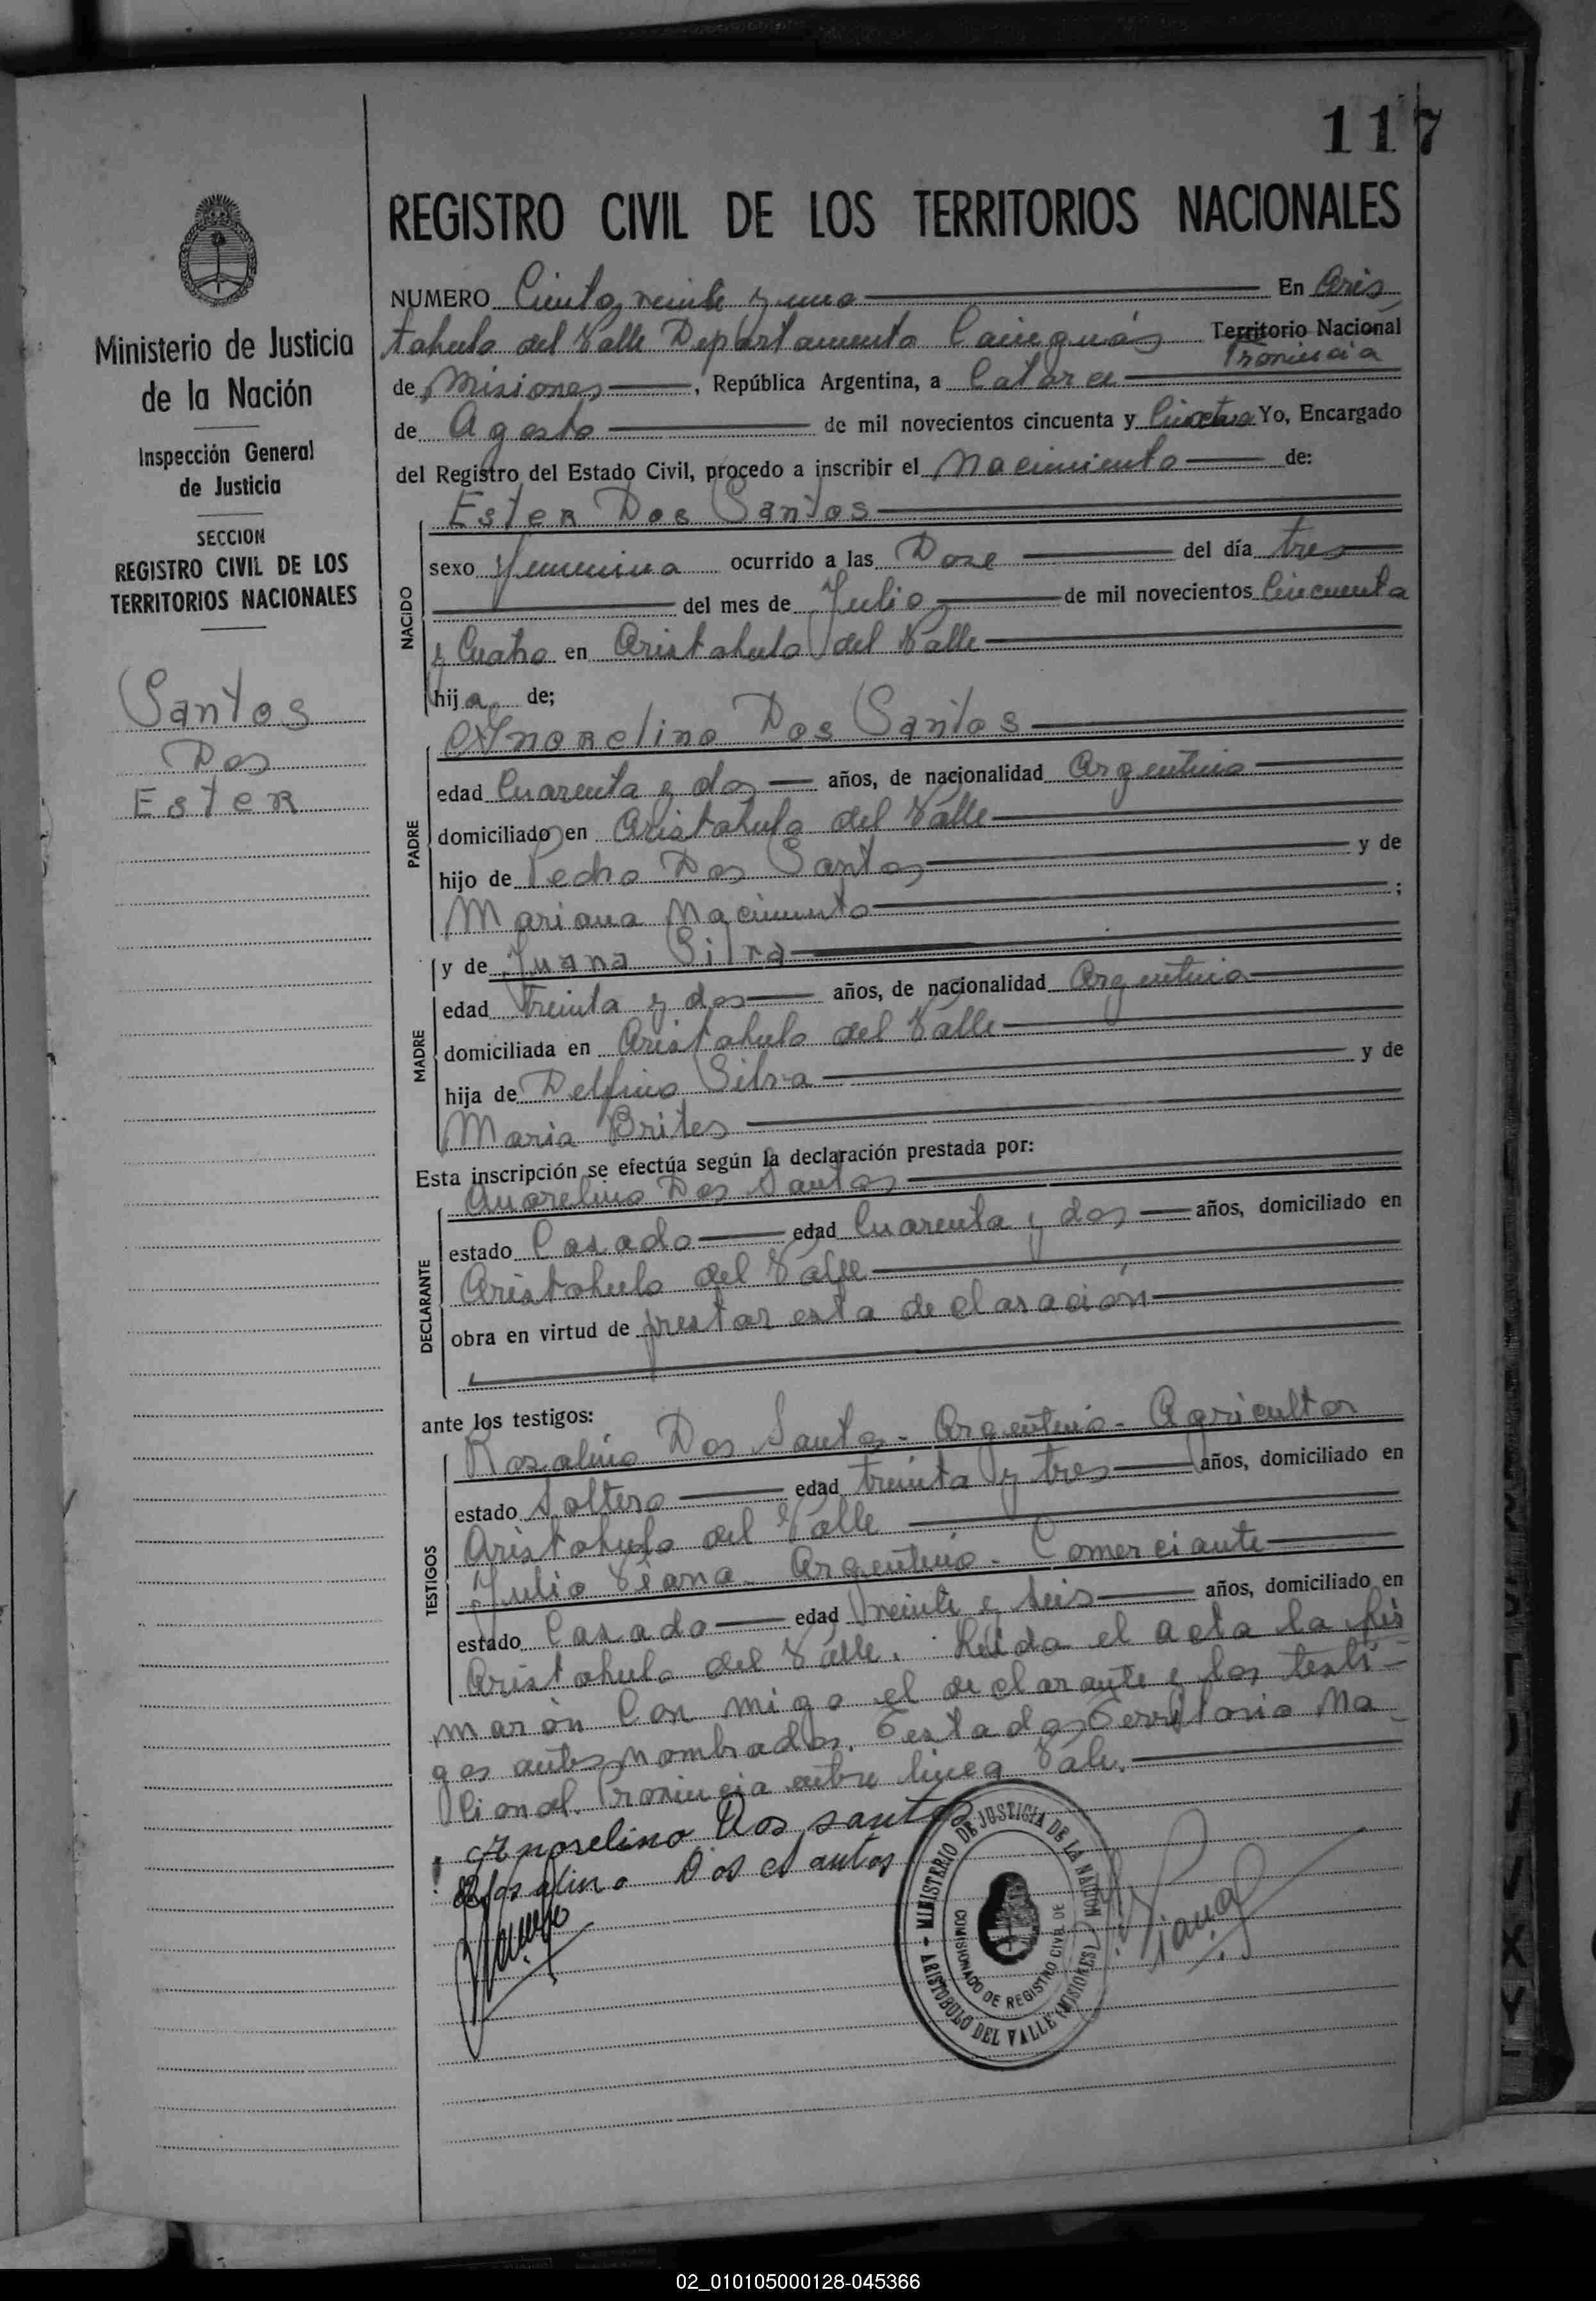 117
REGISTRO CIVIL DE LOS TERRITORIOS NACIONALES
Ministerio de Justicia
de la Nación
Inspección General
de Justicia
SECCION
REGISTRO CIVIL DE LOS
TERRITORIOS NACIONALES
Santos
Dos
Ester
NUMERO Ciento veinte y uno En Aris
tobulo del Valle Departamento Cainguás Territorio Nacional
Provincia
de Misiones, República Argentina, a Catorce
de Agosto de mil novecientos cincuenta y Cuatro Yo, Encargado
del Registro del Estado Civil, procedo a inscribir el Nacimiento de:
NACIDO
Ester Dos Santos
sexo femenina ocurrido a las Doze del día tres
del mes de Julio de mil novecientos Cincuenta
y Cuatro en Aristobulo del Valle
hija de;
PADRE
Anorelino Dos Santos
edad Cuarenta y dos años, de nacionalidad Argentino
domiciliado en Aristobulo del Valle
hijo de Pedro Dos Santos y de
Mariana Nacimento;
MADRE
y de Juana Silva
edad Treinta y dos años, de nacionalidad Argentina
domiciliada en Aristobulo del Valle
hija de Delfino Silva y de
Maria Brites
Esta inscripción se efectúa según la declaración prestada por:
DECLARANTE
Anorelino Dos Santos
estado Casado edad Cuarenta y dos años, domiciliado en
Aristobulo del Valle
obra en virtud de prestar esta declaración
ante los testigos:
TESTIGOS
Rozalino Dos Santos - Argentino - Agricultor
estado Soltero edad treinta y tres años, domiciliado en
Aristobulo del Valle
Julio Viana - Argentino - Comerciante
estado Casado edad veinte y seis años, domiciliado en
Aristobulo del Valle. Leida el acta la fir
maron Con migo el declarante y los testi-
gos antes nombrados. Testado Territorio Na-
cional. Provincia entre linea Vale.
Anorelino Dos santos
Rosalino Dos Santos
MINISTERIO DE JUSTICIA DE LA NACION
COMISIONADO DE REGISTRO CIVIL DE
ARISTOBULO DEL VALLE (MISIONES)
02_010105000128-045366